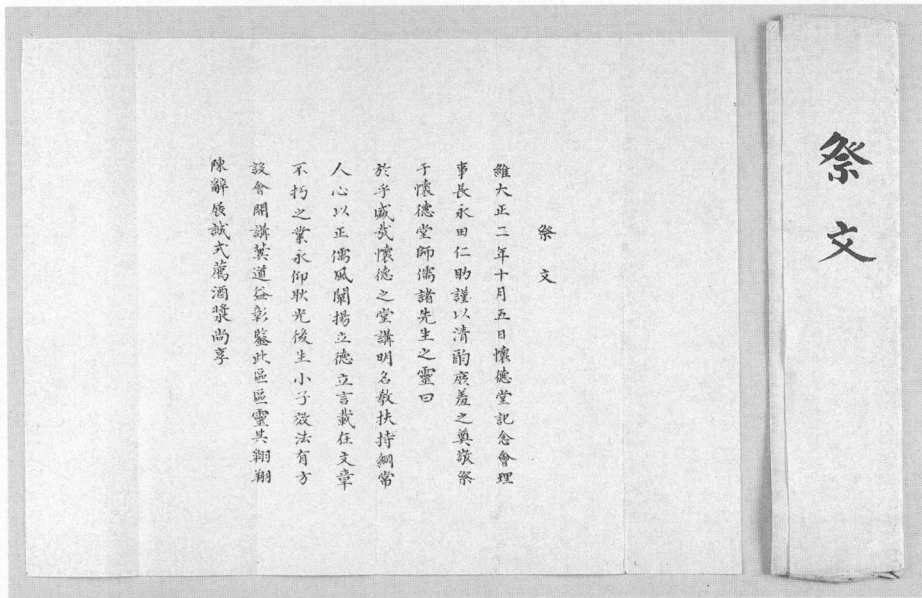 祭文
祭文
維大正二年十月五日懷德堂記念會理
事長永田仁助謹以清酌庶羞之奠敬祭
于懷德堂師儒諸先生之靈曰
於乎盛哉懷德之堂講明名教扶持綱常
人心以正儒風闡揚立德立言載在文章
不朽之業永仰耿光後生小子效法有方
設會開講冀道益彰鑒此區區靈其翱翔
陳辭展誠式薦酒漿尚享